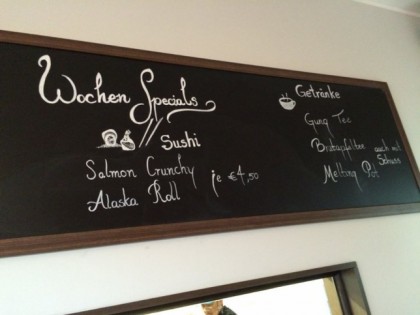 Wochen Specials
Sushi
Salmon Crunchy
Alaska Roll
je €4,50
Getränke
Gung Tee
auch mit
Melting Pot